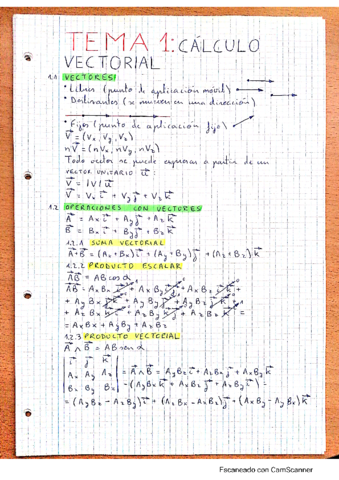 TEMA 1: CÁLCULO
VECTORIAL
1.1 VECTORES
• Libres (punto de aplicación móvil)
• Deslizantes (se mueven en una dirección)
• Fijos (punto de aplicación fijo)
V⃗ = (Vx, Vy, Vz)
nV⃗ = (nVx, nVy, nVz)
Todo vector se puede expresar a partir de un
VECTOR UNITARIO: u⃗:
V⃗ = |V| u⃗
V⃗ = Vx i⃗ + Vy j⃗ + Vz k⃗
1.2 OPERACIONES CON VECTORES
A⃗ = Ax i⃗ + Ay j⃗ + Az k⃗
B⃗ = Bx i⃗ + By j⃗ + Bz k⃗
1.2.1 SUMA VECTORIAL
A⃗+B⃗ = (Ax+Bx) i⃗ + (Ay+By) j⃗ + (Az+Bz) k⃗
1.2.2 PRODUCTO ESCALAR
A⃗B⃗ = AB cos α
= AxBx + AyBy + AzBz
1.2.3 PRODUCTO VECTORIAL
A⃗ ∧ B⃗ = AB sen α
i⃗ j⃗ k⃗
Ax Ay Az = A⃗ ∧ B⃗ = AyBz i⃗ + AzBx j⃗ + AxBy k⃗
Bx By Bz - (AyBx k⃗ + AxBz j⃗ + AzBy i⃗) =
= (AyBz - AzBy) i⃗ + (AzBx - AxBz) j⃗ + (AxBy - AyBx) k⃗
Escaneado con CamScanner